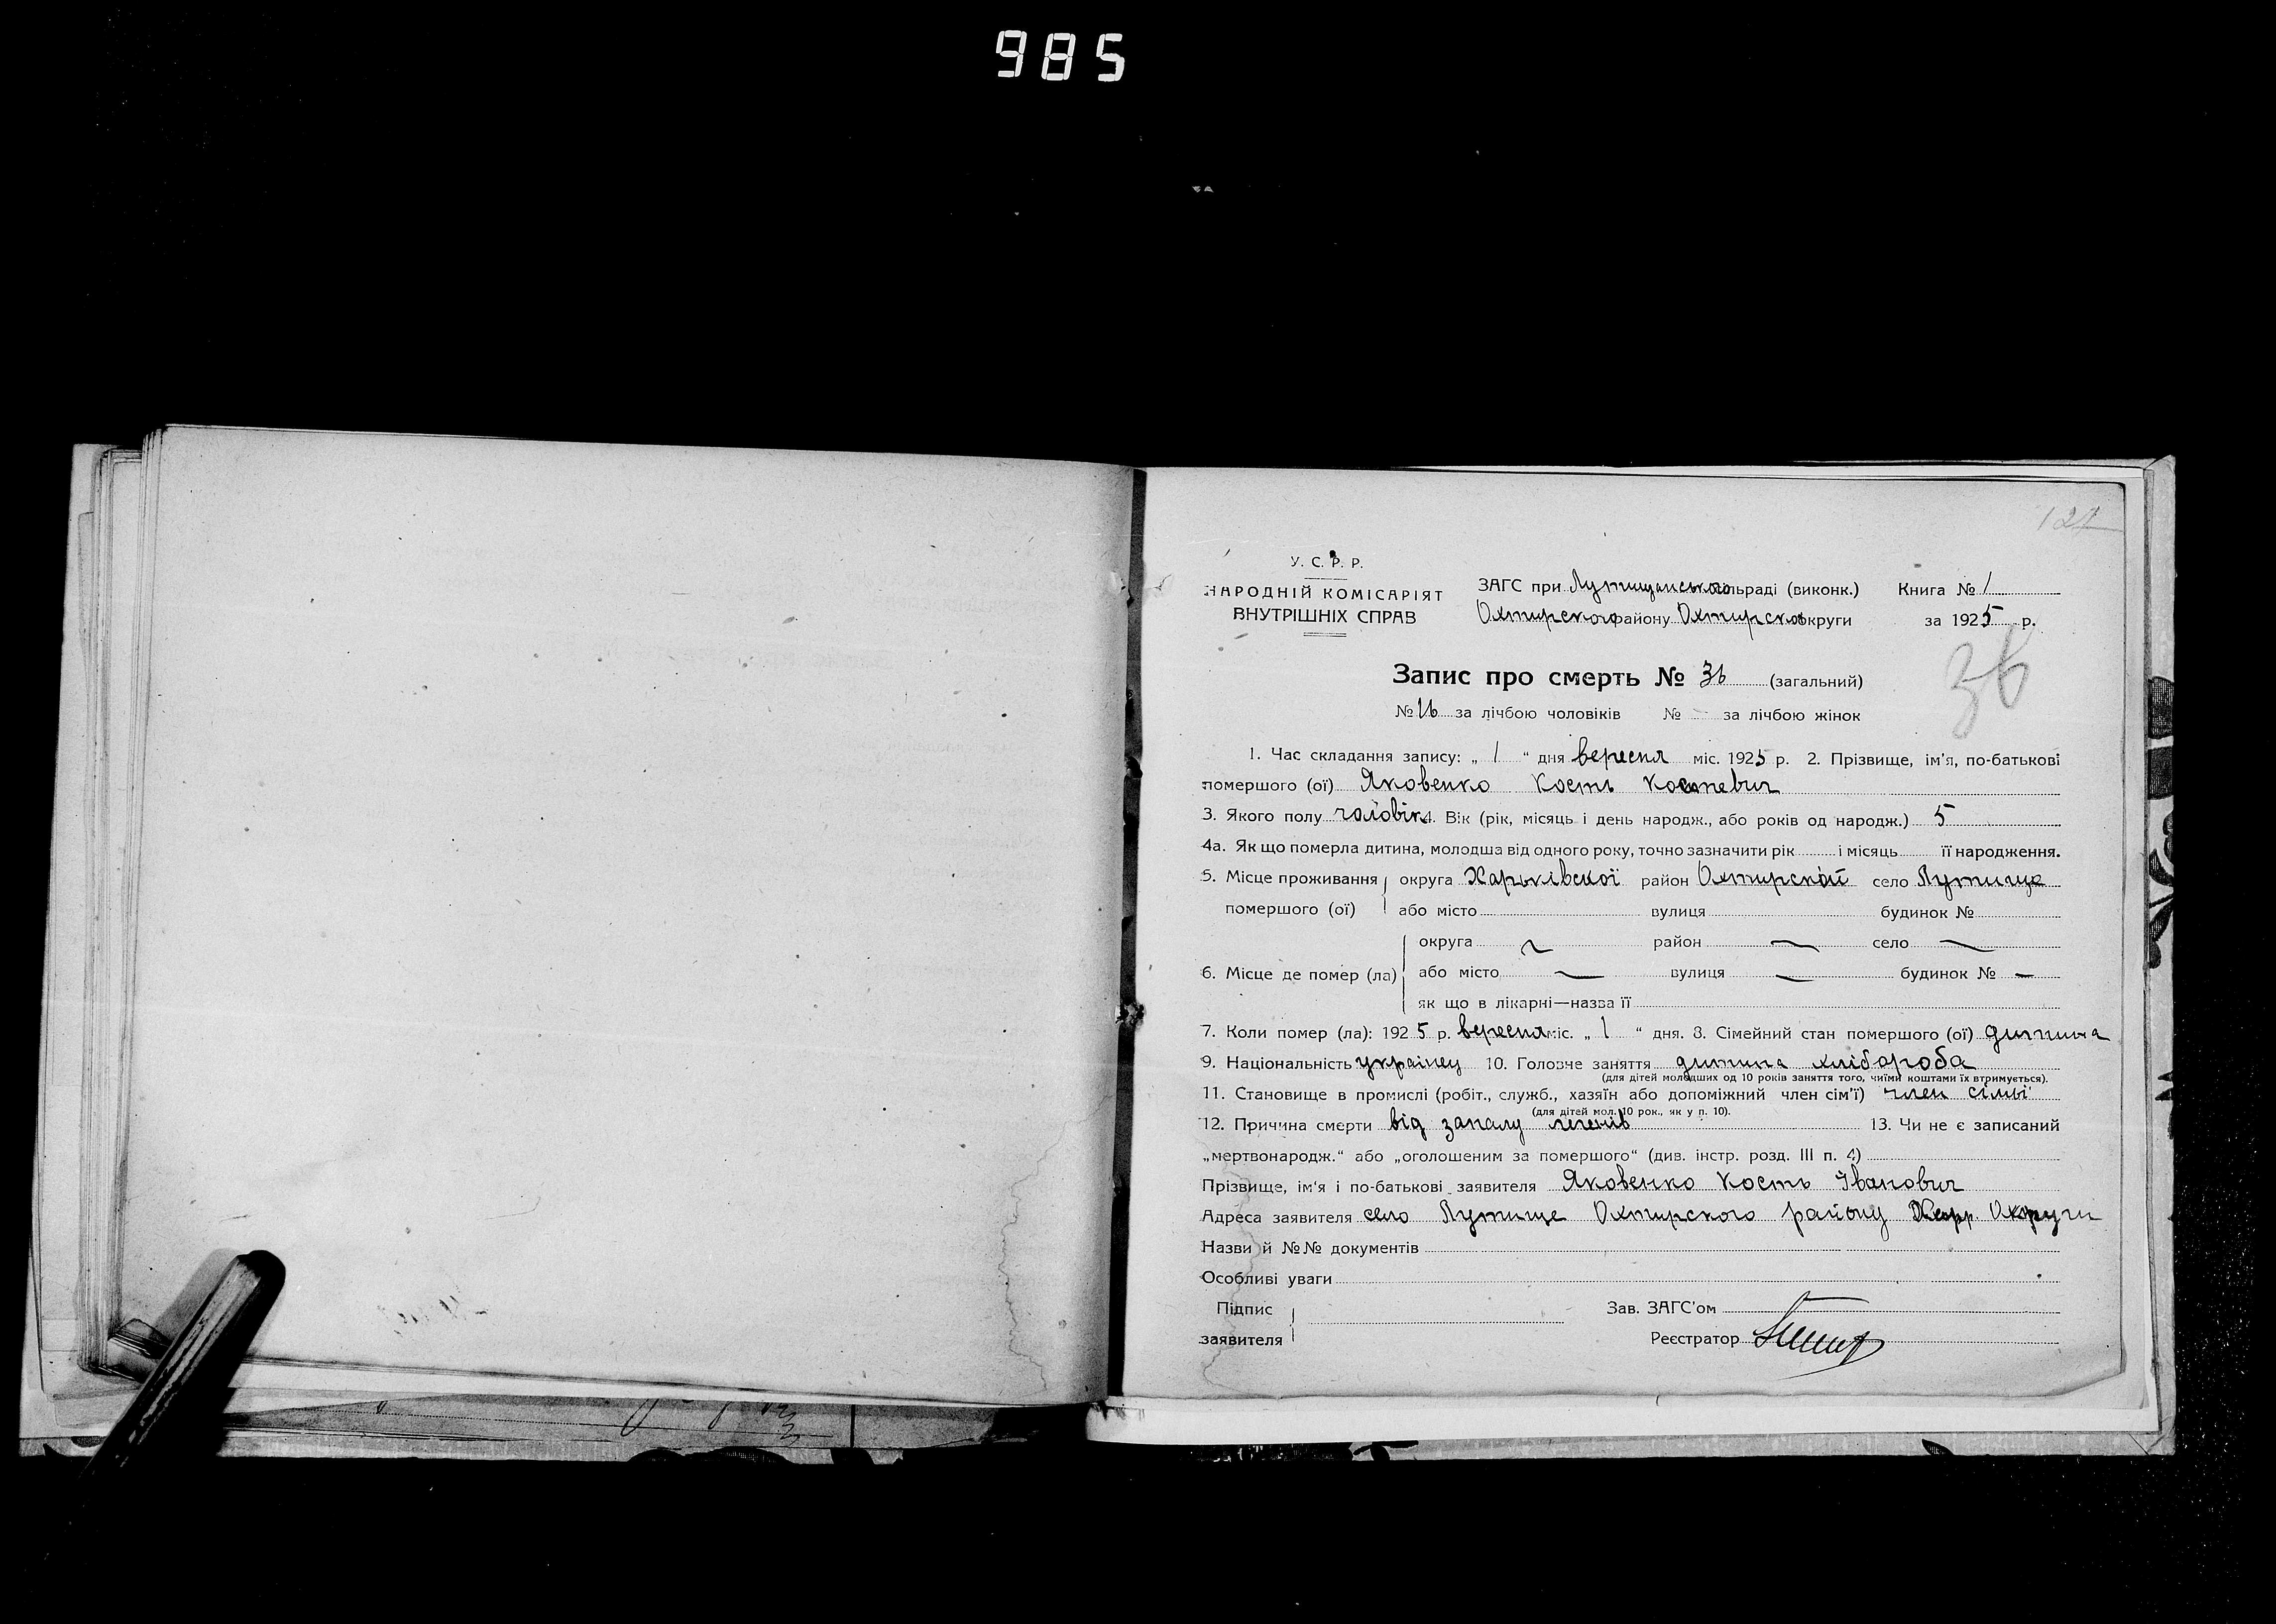 985
121
У. С. Р. Р.
НАРОДНІЙ КОМІСАРІЯТ
ВНУТРІШНІХ СПРАВ
ЗАГС при Лутищанського сільраді (виконк.) Книга № 1
Охтирского району Охтирско округи за 1925 р.
Запис про смерть № 36 (загальний)
36
№ 16 за лічбою чоловіків № – за лічбою жінок
1. Час складання запису: „ 1 “ дня вересня міс. 1925 р. 2. Прізвище, ім'я, по-батькові
помершого (ої) Яковенко Кость Костевич
3. Якого полу чоловік 4. Вік (рік, місяць і день народж., або років од народж.) 5
4а. Як що померла дитина, молодша від одного року, точно зазначити рік і місяць її народження.
5. Місце проживання округа Харьківскої район Охтирской село Лутище
помершого (ої) або місто вулиця будинок №
округа — район — село —
6. Місце де помер (ла) або місто — вулиця — будинок № —
як що в лікарні—назва її
7. Коли помер (ла): 1925 р. вересня міс. „ 1 “ дня. 8. Сімейний стан помершого (ої) дитина
9. Національність українец 10. Головне заняття дитина хлібороба
(для дітей молодших од 10 років заняття того, чиїми коштами їх втримується).
11. Становище в промислі (робіт., служб., хазяїн або допоміжний член сім'ї) член сімьї
(для дітей мол. 10 рок., як у п. 10).
12. Причина смерти від запалу легенів 13. Чи не є записаний
„мертвонародж.“ або „оголошеним за помершого“ (див. інстр. розд. III п. 4)
Прізвище, ім'я і по-батькові заявителя Яковенко Кость Іванович
Адреса заявителя село Лутище Охтирского району Харр. Округи
Назви й №№ документів
Особливі уваги
Підпис Зав. ЗАГС'ом
заявителя Реєстратор